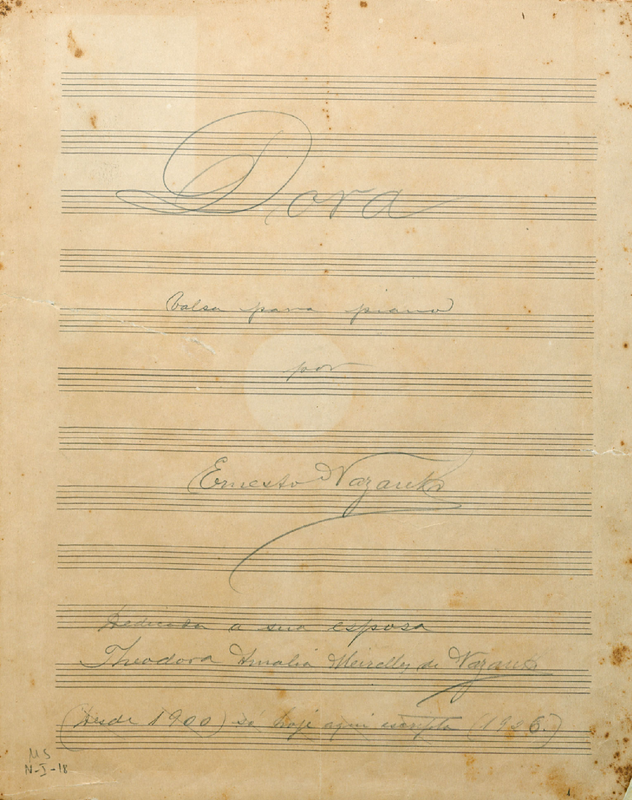 Dora
Valsa para piano
por
Ernesto Nazareth
Dedicada a sua esposa
Theodora Amalia Meirelles de Nazareth
(desde 1900) só hoje aqui escripta (1926.)
MS
N-I-18